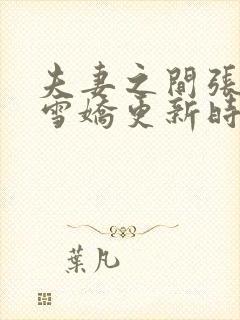 夫妻之間張
雪嬌更新時
葉凡